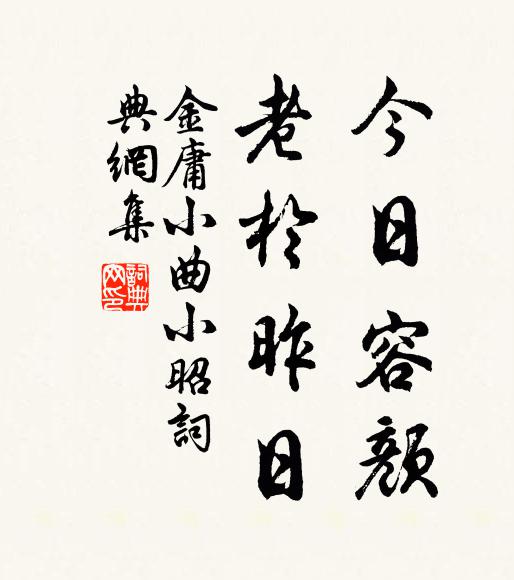 今日容颜
老於昨日
金庸小曲小昭詞
典網集
詞典
网印